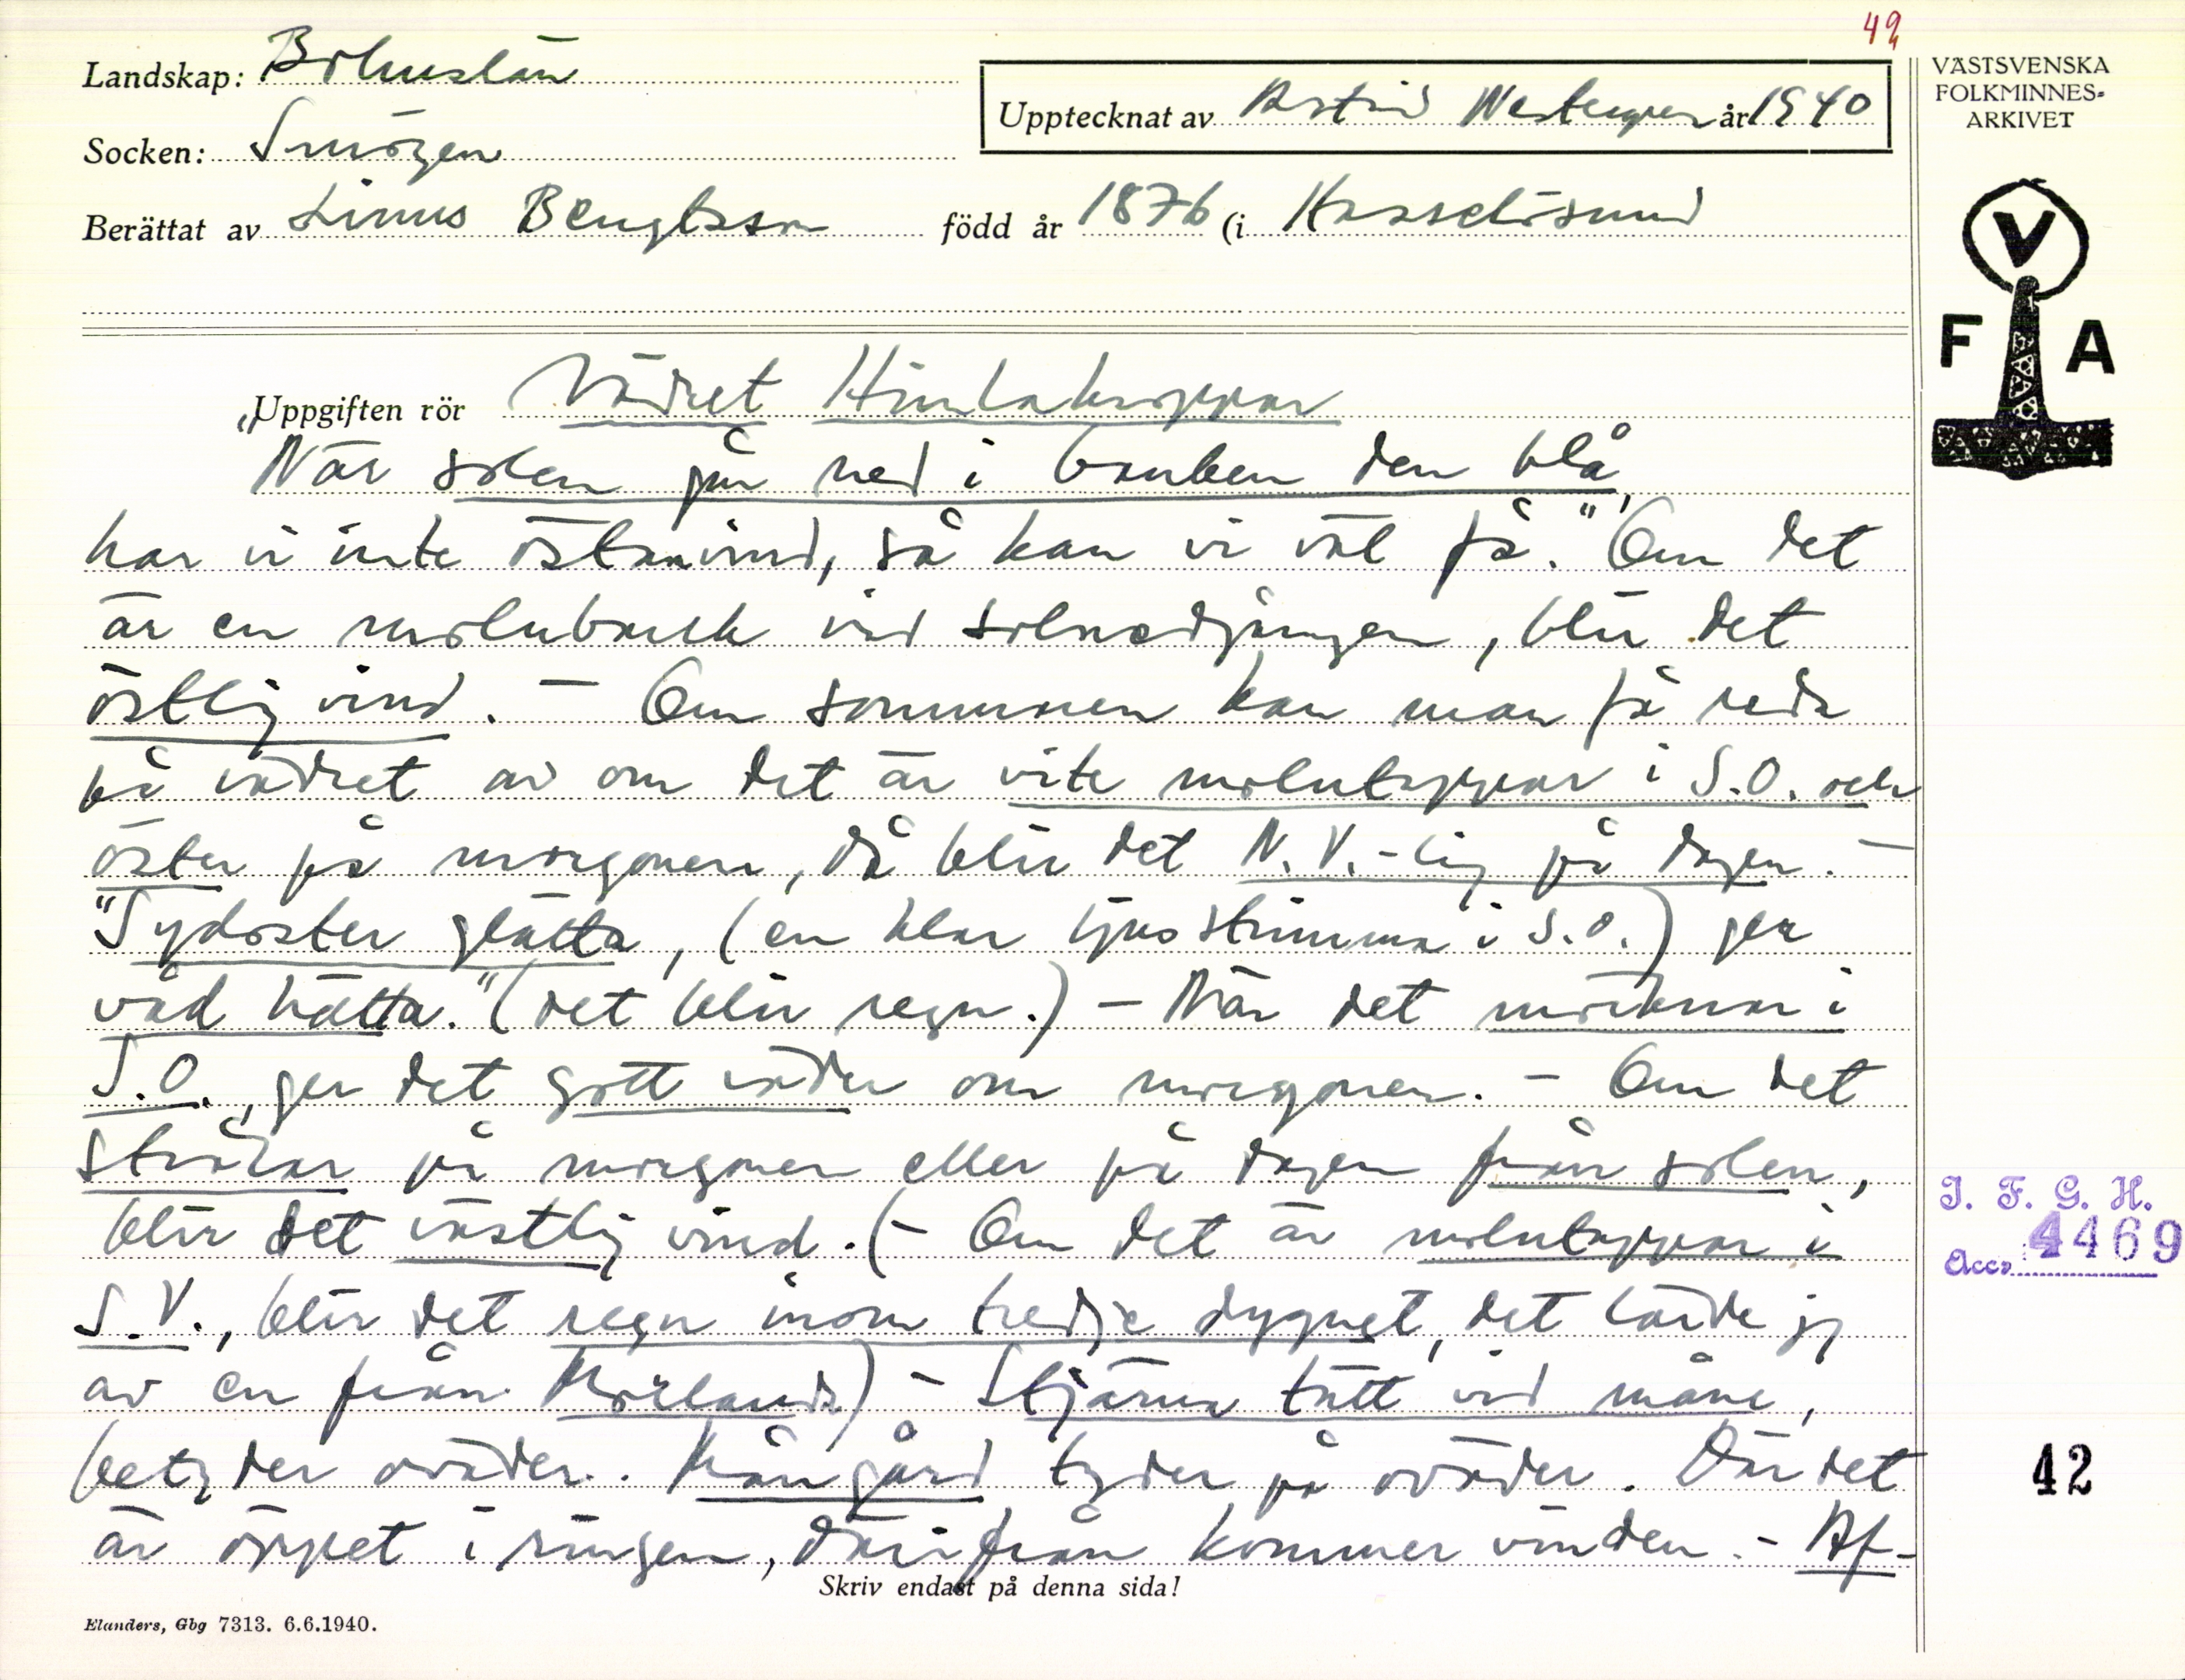 49
Landskap: Bohuslän
Upptecknat av Astrid Westergren år 1940
VÄSTSVENSKA
FOLKMINNES-
ARKIVET
Socken: Smögen
Berättat av Linus Bengtsson född år 1876 (i Hasselösund
V
F A
Uppgiften rör Vädret Himlakroppar
"När solen går ned i banken den blå,
har vi inte östanvind, så kan vi väl få." Om det
är en molnbank vid solnedgången, blir det
östlig vind. – Om sommaren kan man få reda
på vädret av om det är vite molntappar i S.O. och
öster på morgonen, då blir det N.V.-lig på dagen. –
"Sydoster glätta, (en klar ljusstrimma i S.O.) ger
våd hätta." (det blir regn.) – När det mörknar i
S.O., ger det gott väder om morgonen. – Om det
strålar på morgonen eller på dagen från solen,
blir det västlig vind. (– Om det är molntappar i
S.V., blir det regn inom tredje dygnet, det lärde jg
av en från Mörlanda) – Stjärna tätt vid måne,
betyder oväder. Mångård tyder på oväder. Där det
är öppet i ringen, därifrån kommer vinden. – Af-
Skriv endast på denna sida!
Elanders, Gbg 7313. 6.6.1940.
I. F. G. H.
Acc. 4469
42